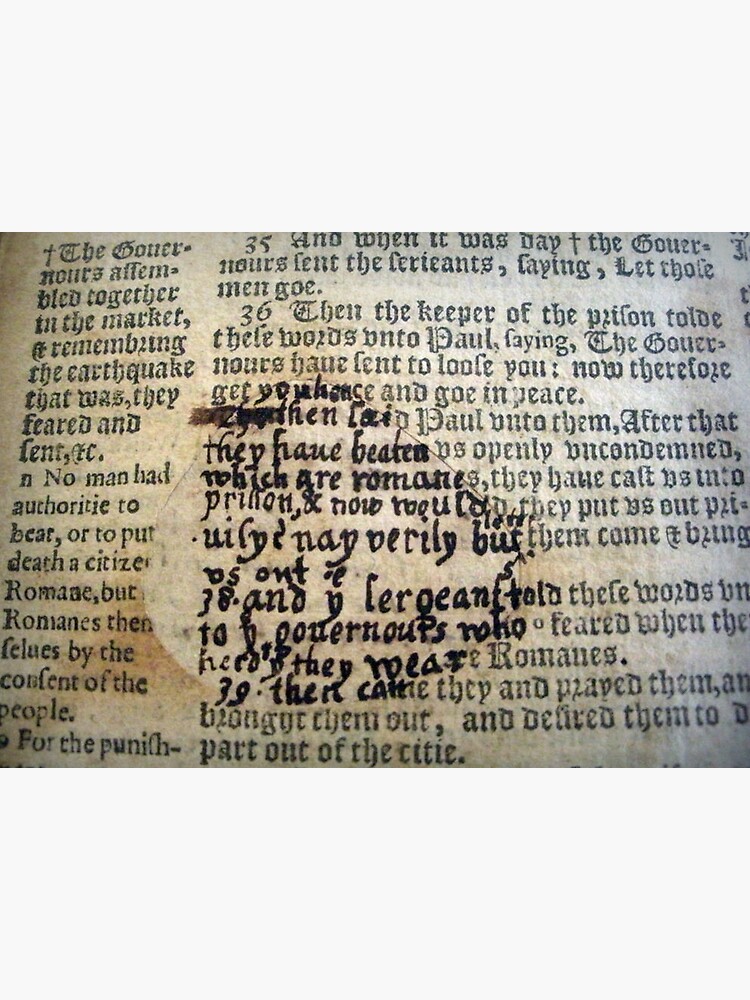 †The Gouer-
nours assem-
bled together
in the market,
& remembring
the earthquake
that was, they
feared and
sent, &c.
n No man had
authoritie to
bear, or to put
death a citize
Romane, but
Romanes them
selues by the
consent of the
people.
o For the punish-
35 And when it was day † the Gouer-
nours sent the serieants, saying, Let those
men goe.
36 Then the keeper of the prison tolde
these words vnto Paul, saying, The Gouer-
nours haue sent to loose you: now therefore
get you hence and goe in peace.
then said Paul vnto them, After that
they haue beaten vs openly vncondemned,
which are romanes, they haue cast vs into
prison, & now would they put vs out pri-
uisy? nay verily but let them come & bring
vs out
38. and y sergeans told these words vn
to y gouernours who o feared when the
herd y they weare Romanes.
39. then came they and prayed them, an
brought them out, and desired them to d
part out of the citie.